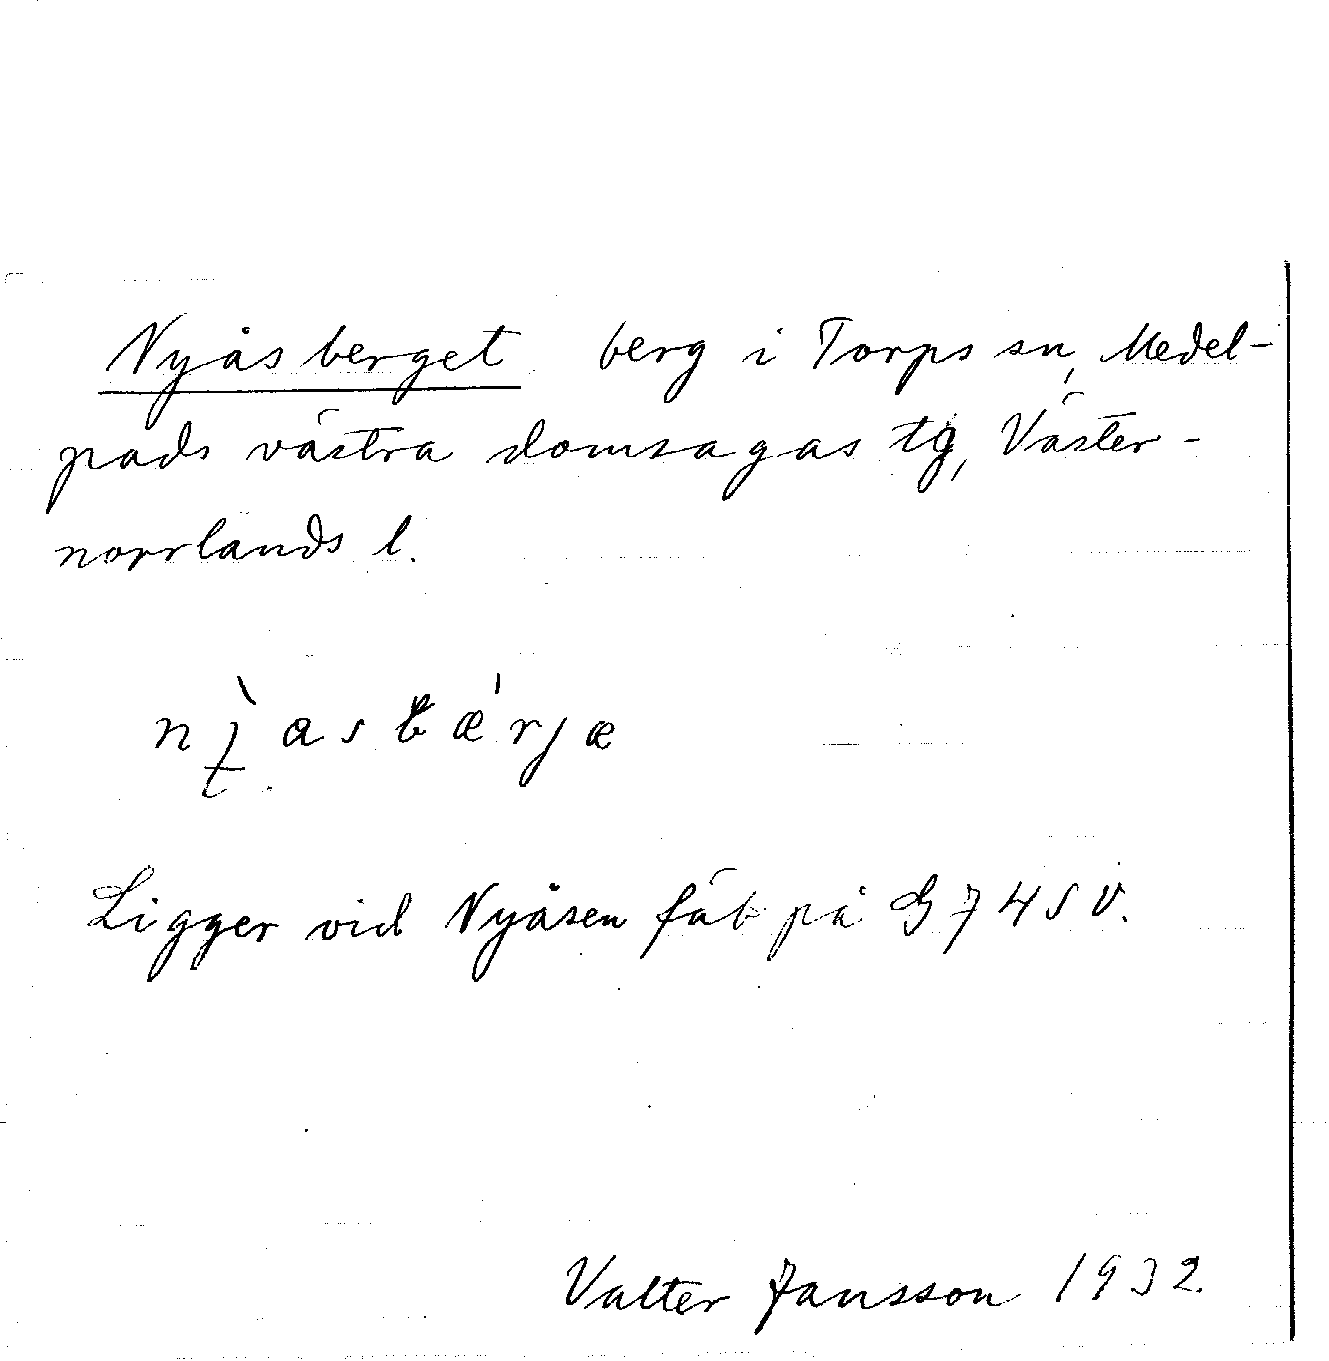 Nyåsberget berg i Torps sn, Medel-
pads västra domsagas tg, Väster-
norrlands l.
Ligger vid Nyåsen fäb på G 74 SV.
Valter Jansson 1932.